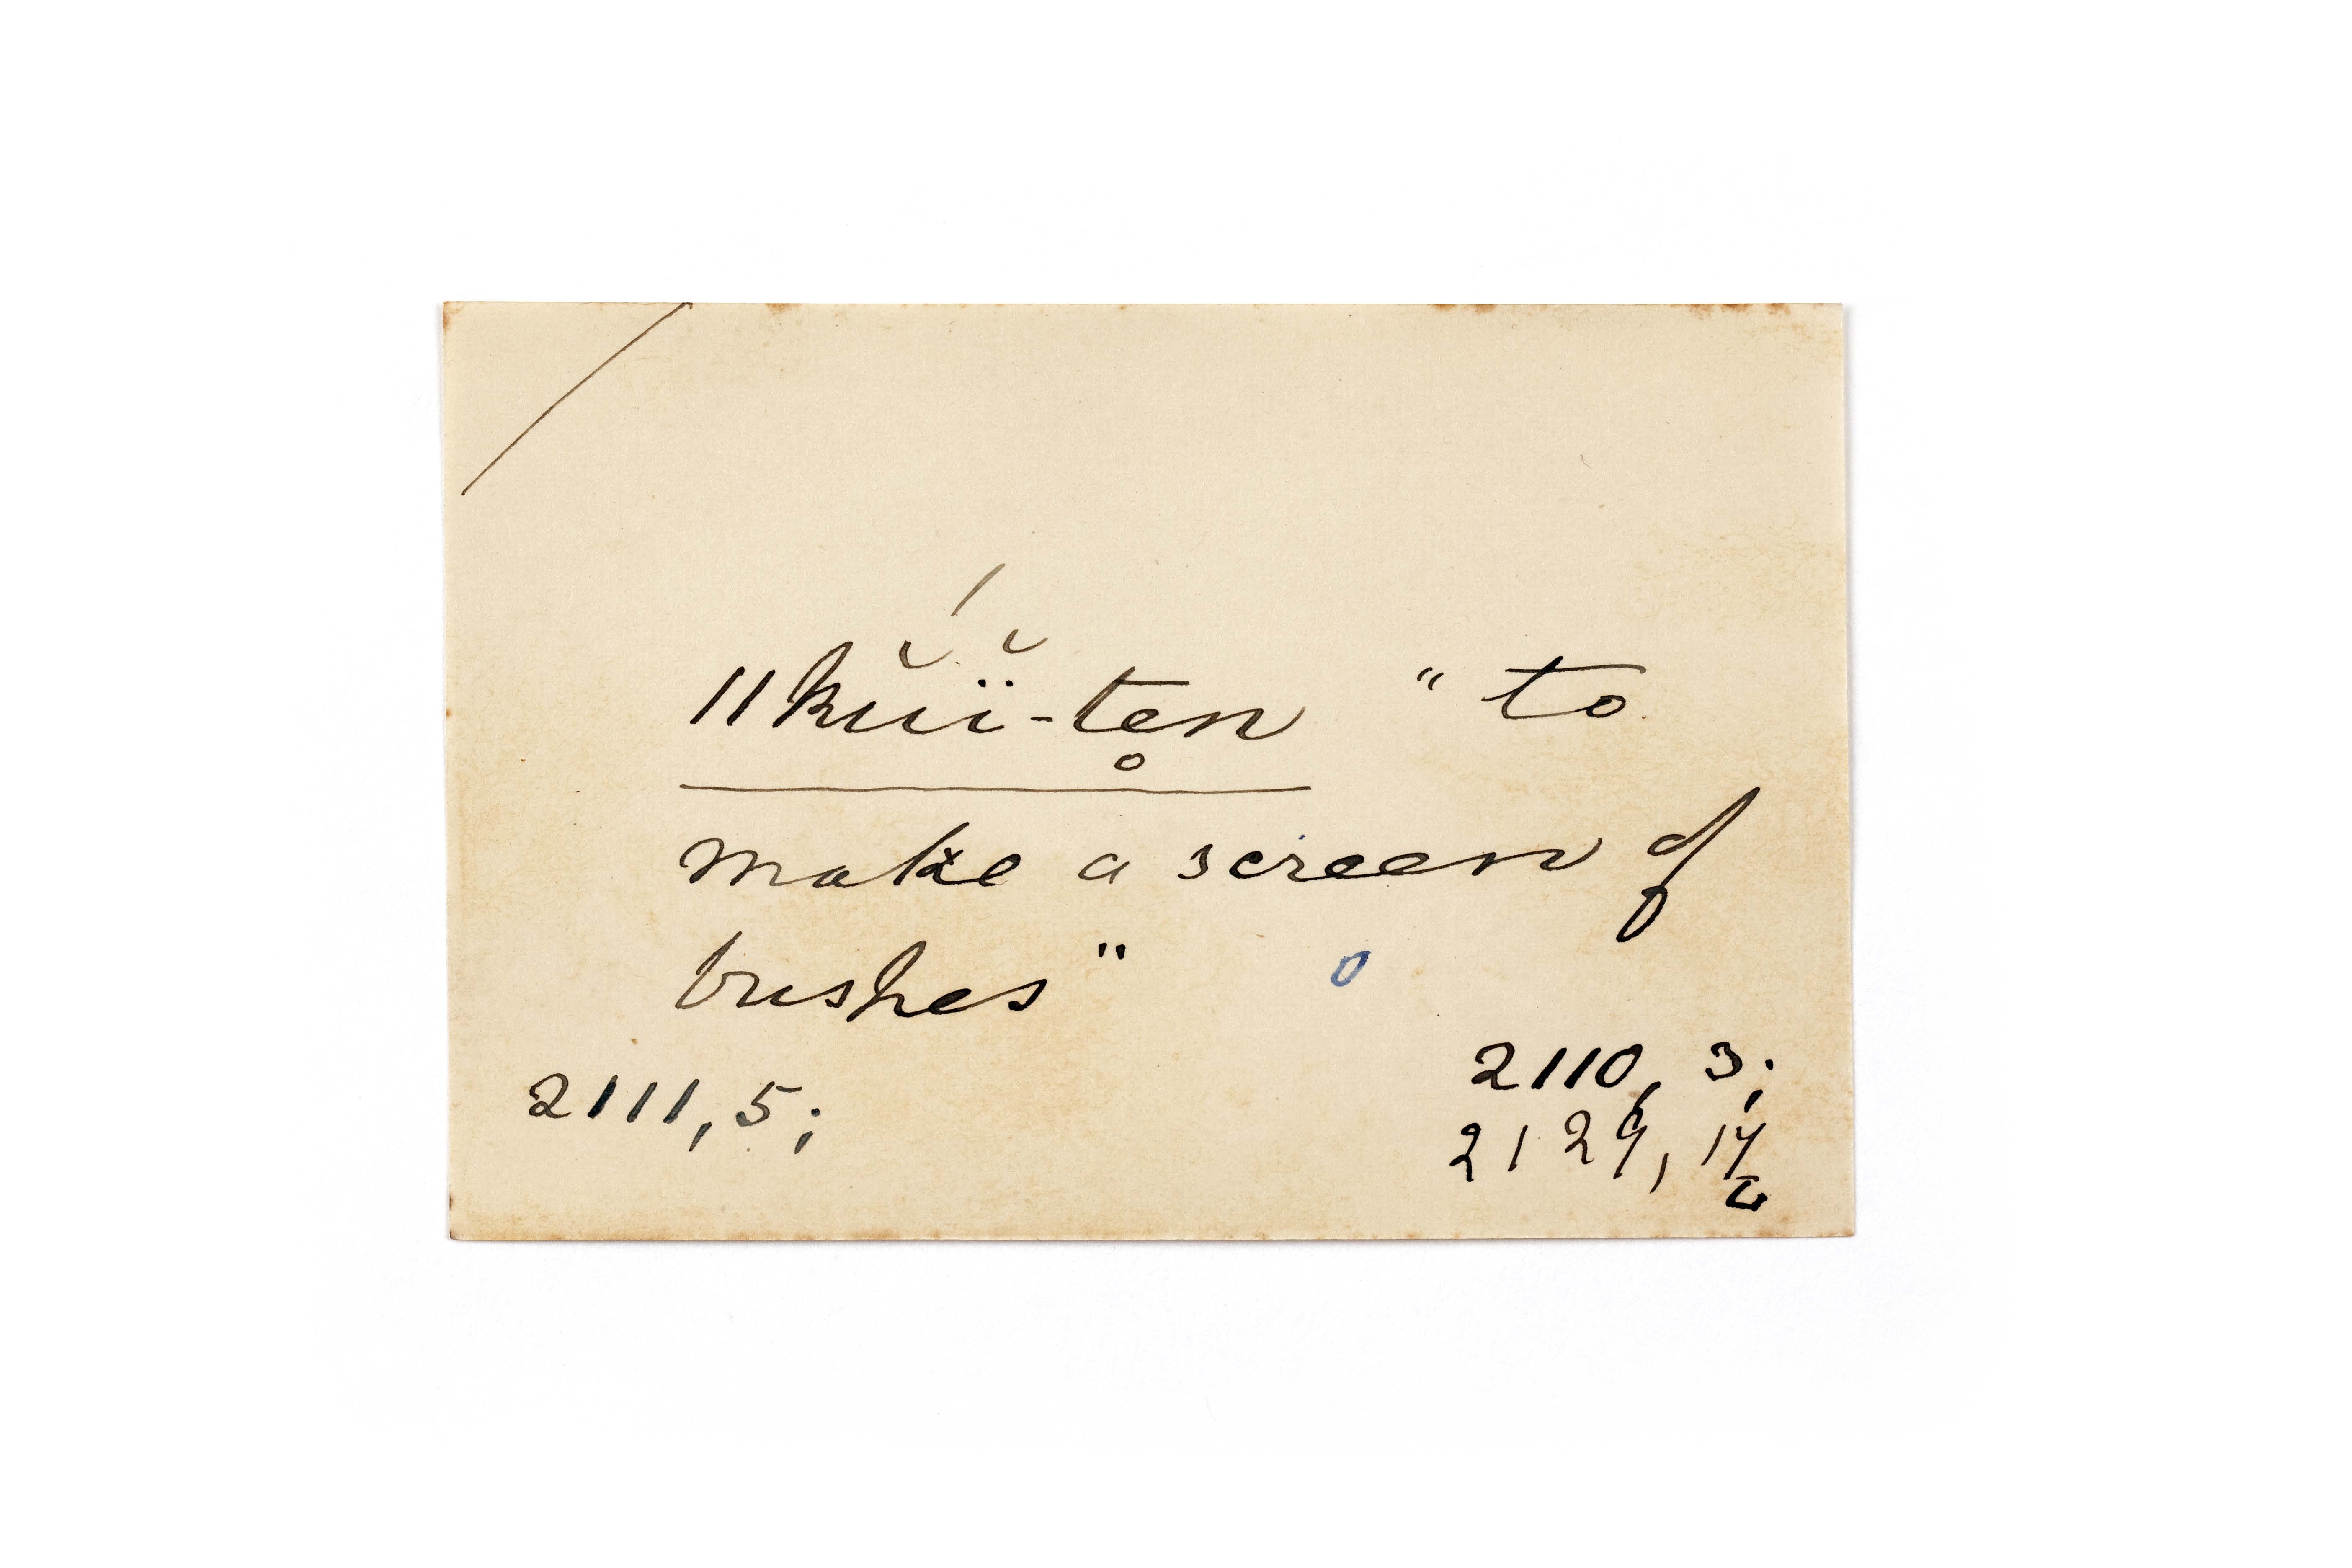 ǁkŭï̆-te̥n "to
make a screen of
bushes"
2110, 3;
2111, 5;
2129, 14